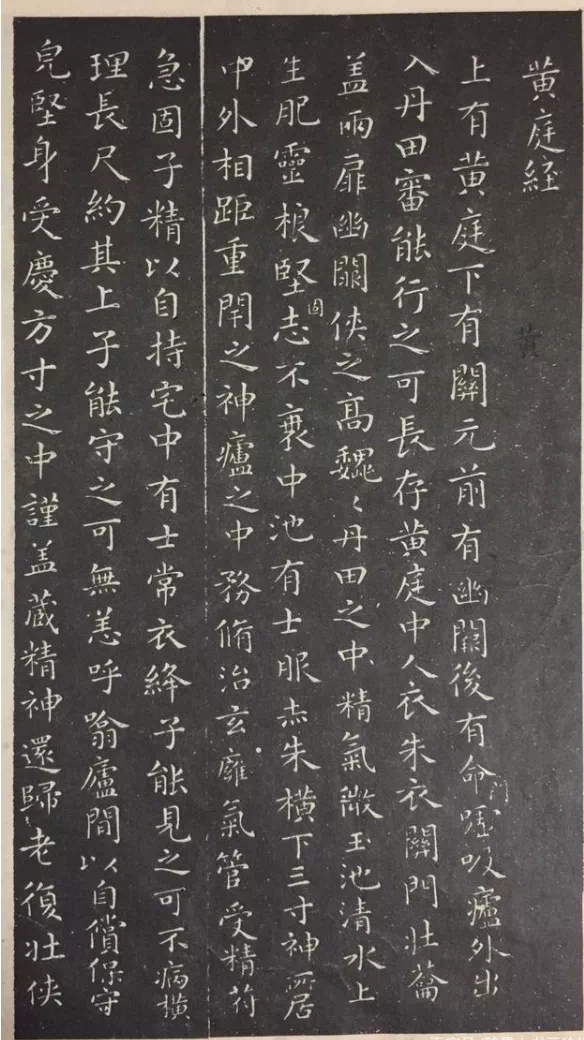 黃庭經
上有黃庭下有關元前有幽關後有命門噓吸廬外出
入丹田審能行之可長存黃庭中人衣朱衣關門壯蘥
盖兩扉幽關俠之高魏〻丹田之中精氣微玉池清水上
生肥靈根堅固志不衰中池有士服赤朱橫下三寸神所居
中外相距重閇之神廬之中務脩治玄癰氣管受精符
急固子精以自持宅中有士常衣絳子能見之可不病橫
理長尺約其上子能守之可無恙呼噏廬間以自償保守
皃堅身受慶方寸之中謹盖藏精神還歸老復壯俠